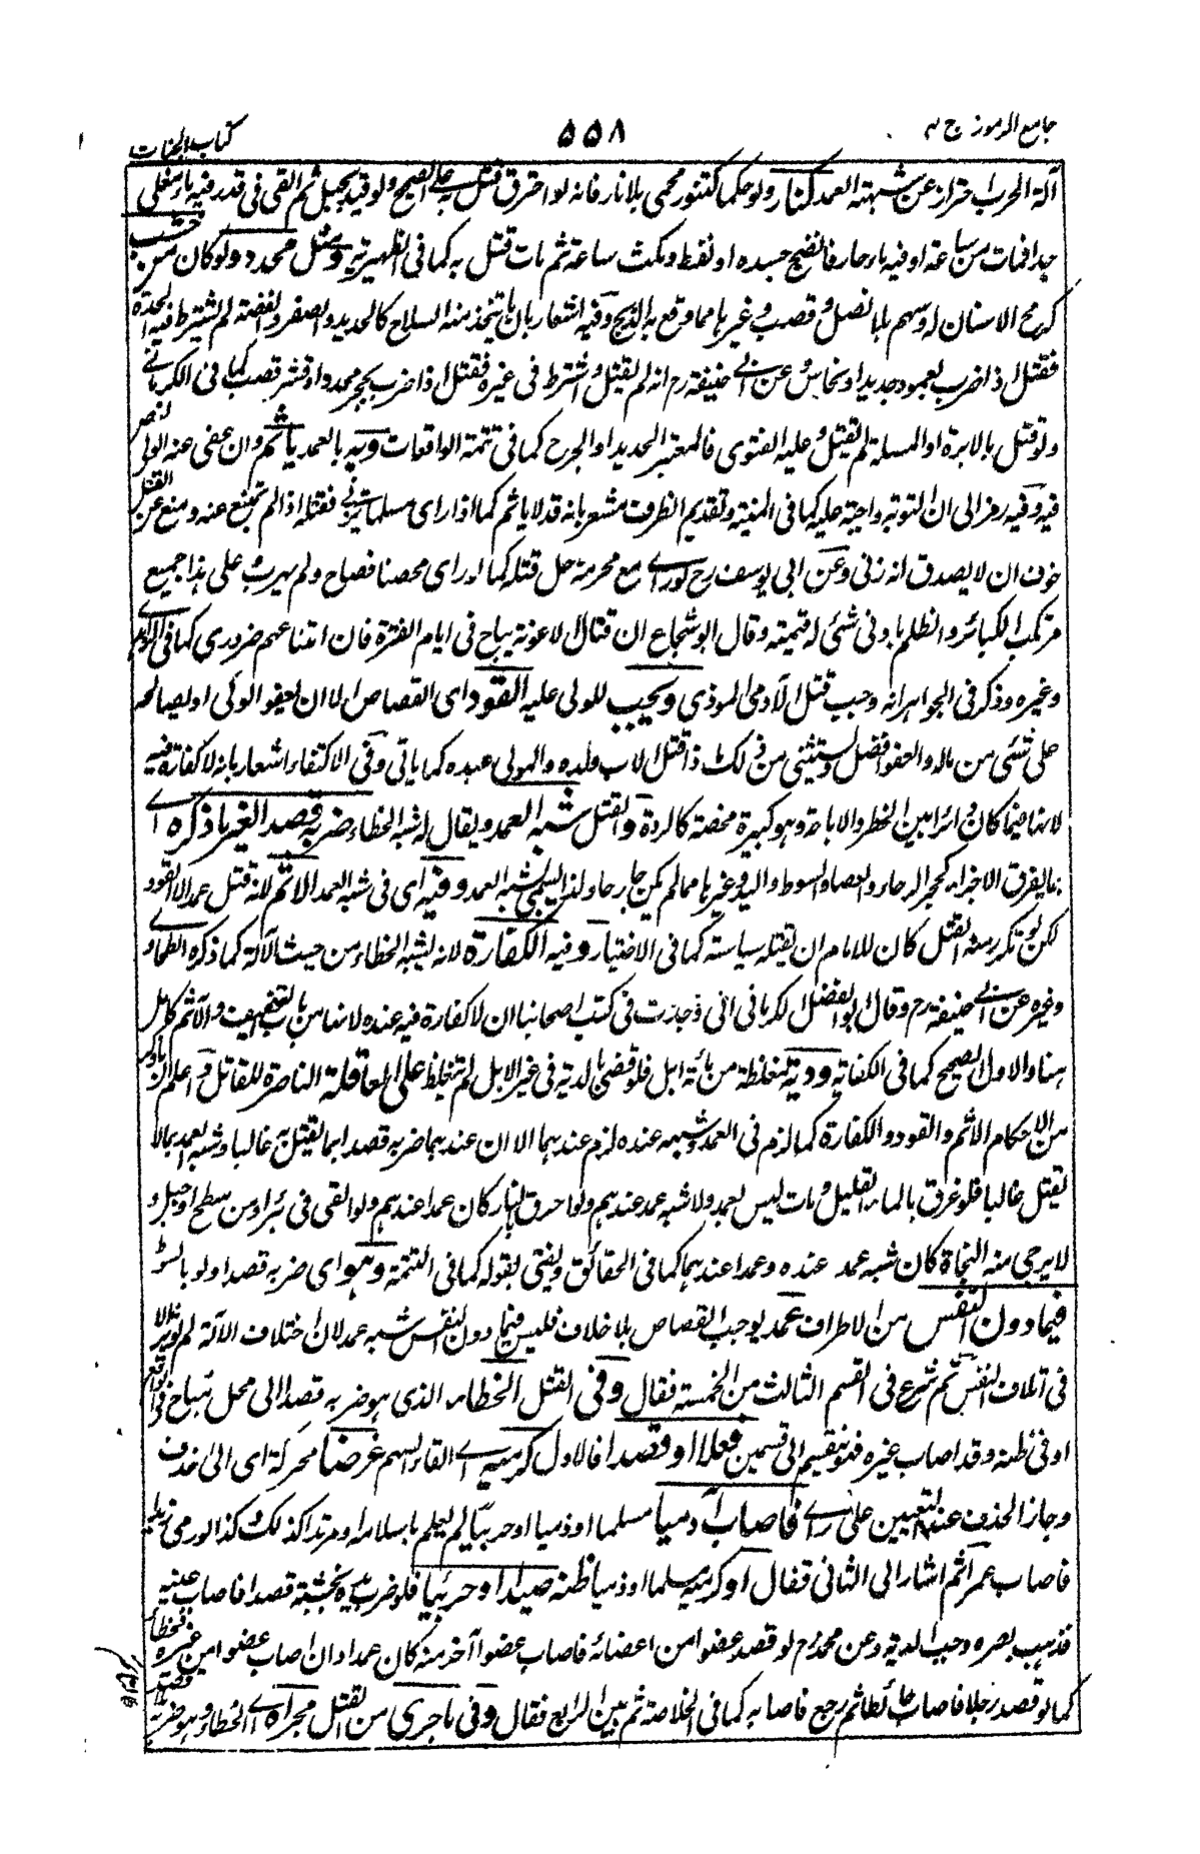 جامع الرموز ج ٣
٥٥٨
كتاب الجنايات
آلة الحرب احتراز عن شبهة العمد كنار ولو حكما كتنور محمى بلا نار فانه لو احترق قتل به على الصحيح ولو قيد بحبل ثم القى فى قدر فيه ماء مغلى
جدا فمات من ساعته او فيه ماء حار فانضج جسده او نفط ومكث ساعة ثم مات قتل به كما فى الظهيرية ومثل محدد ولو كان من خشب
كرمح لا سنان له وسهم بلا نصل وقصب وغيرها مما وقع به الذبح وفيه اشعار بان ما يتخذ منه السلاح كالحديد والصفر والفضة لم يشترط فيه الحدة
فقتل اذا ضرب بعمود حديد او نحاس وعن ابى حنيفة رح انه لم يقتل واشترط فى غيره فقتل اذا ضرب بحجر محدد او قشر قصب كما فى الكرمانى
ولو قتل بالابرة او المسلة لم يقتل وعليه الفتوى فالمعتبر الحديد او الجرح كما فى تتمة الواقعات وبه بالعمد يأثم وان عفى عنه الولى لنص
فيه وفيه رمز الى ان التوبة واجبة عليه كما فى المنية وتقديم الظرف مشعر بانه قد لا ياثم كما اذا راى مسلما يزنى فقتله اذا لم يمتنع عنه ومنع عن القتل
خوف ان لا يصدق انه زنى وعن ابى يوسف رح لو راى مع محرمه حل قتله كما لو راى محصنا فصاح ولم يهرب وعلى هذا جميع
مرتكب الكبائر والظلم بادنى شئى له قيمته وقال ابو شجاع ان قتال الاعونة يباح فى ايام الفترة فان امتناعهم ضرورى كما فى
وغيره وذكر فى الجواهر انه وجب قتل الآدمى الموذى ويجب للولى عليه القود اى القصاص الا ان يعفو الولى او يصالحه
على شئى من ماله والعفو افضل ويستثنى من ذلك ما اذا قتل الاب ولده والمولى عبده كما ياتى وفى الاكتفاء اشعار بانه لا كفارة فيه
لانها فيما كان دائرا بين الحظر والاباحة وهو كبيرة محضة كالردة والقتل شبه العمد ويقال له شبه الخطاء ضربه قصدا لغير ما ذكره اى
بما يفرق الاجزاء كحجر الرحاء والعصا والسوط واليد وغيرها مما لم يكن جارحا ولذا يسمى شبه العمد وفيه اى فى شبه العمد الاثم لانه قتل عمد الا القود
لكن لو تكرر منه القتل كان للامام ان يقتله سياسة كما فى الاختيار وفيه الكفارة لانه يشبه الخطاء من حيث الآلة كما ذكره الطحاوى
وغيره عن ابى حنيفة رح وقال ابو الفضل الكرمانى انى وجدت فى كتب اصحابنا ان لا كفارة فيه عنده لانها من باب التخفيف والاثم كامل
هنا والاول الصحيح كما فى الكفاية ودية مغلظة من مائة ابل فلو قضى بالدية فى غير الابل لم تتغلظ على العاقلة الناصرة للقاتل واعلم ان ما ذكر
من الاحكام الاثم والقود والكفارة كما لزم فى العمد وشبهه عنده لزم عندهما الا ان عندهما ضربه قصدا بما يقتل به غالبا وشبه العمد بما لا
يقتل غالبا فلو غرق بالماء القليل ومات ليس بعمد ولا شبه عمد عندهم ولو احرق بالنار كان عمدا عندهم ولو القى فى بئر او من سطح او جبل و
لا يرجى منه النجاة كان شبه عمد عنده وعمدا عندهما كما فى الحقائق ويفتى بقوله كما فى التتمة وهو اى ضربه قصدا ولو بالسوط
فيما دون النفس من الاطراف عمد يوجب القصاص بلا خلاف فليس فيما دون النفس شبه عمد لان اختلاف الآلة لم يوثر الا
فى اتلاف النفس ثم شرع فى القسم الثالث من الخمسة فقال وفى القتل الخطاء الذى هو ضربه قصدا الى محل مباح فى الواقع
او فى ظنه وقد اصاب غيره فهو ينقسم الى قسمين فعلا او قصدا فالاول كرميه اى القاء السهم غرضا محركة اى الى هدف
وجاز الحذف عند التعيين على راى فاصاب آدميا مسلما او ذميا او حربيا لم يعلم باسلامه او مرتدا كذلك وكذا لو رمى زيدا
فاصاب عمرا ثم اشار الى الثانى فقال او كرميه مسلما او ذميا ظنه صيدا او حربيا فلو ضرب يده بخشبة قصدا فاصاب عينه
فذهب بصره وجب الدية وعن محمد رح لو قصد عضوا من اعضائه فاصاب عضوا آخر منه كان عمدا وان اصاب عضوا من غيره فخطأ
كما لو قصد رجلا فاصاب حائطا ثم رجع فاصابه كما فى الخلاصة ثم بين الرابع فقال وفى ما جرى من القتل مجراه اى الخطاء وهو ضربه